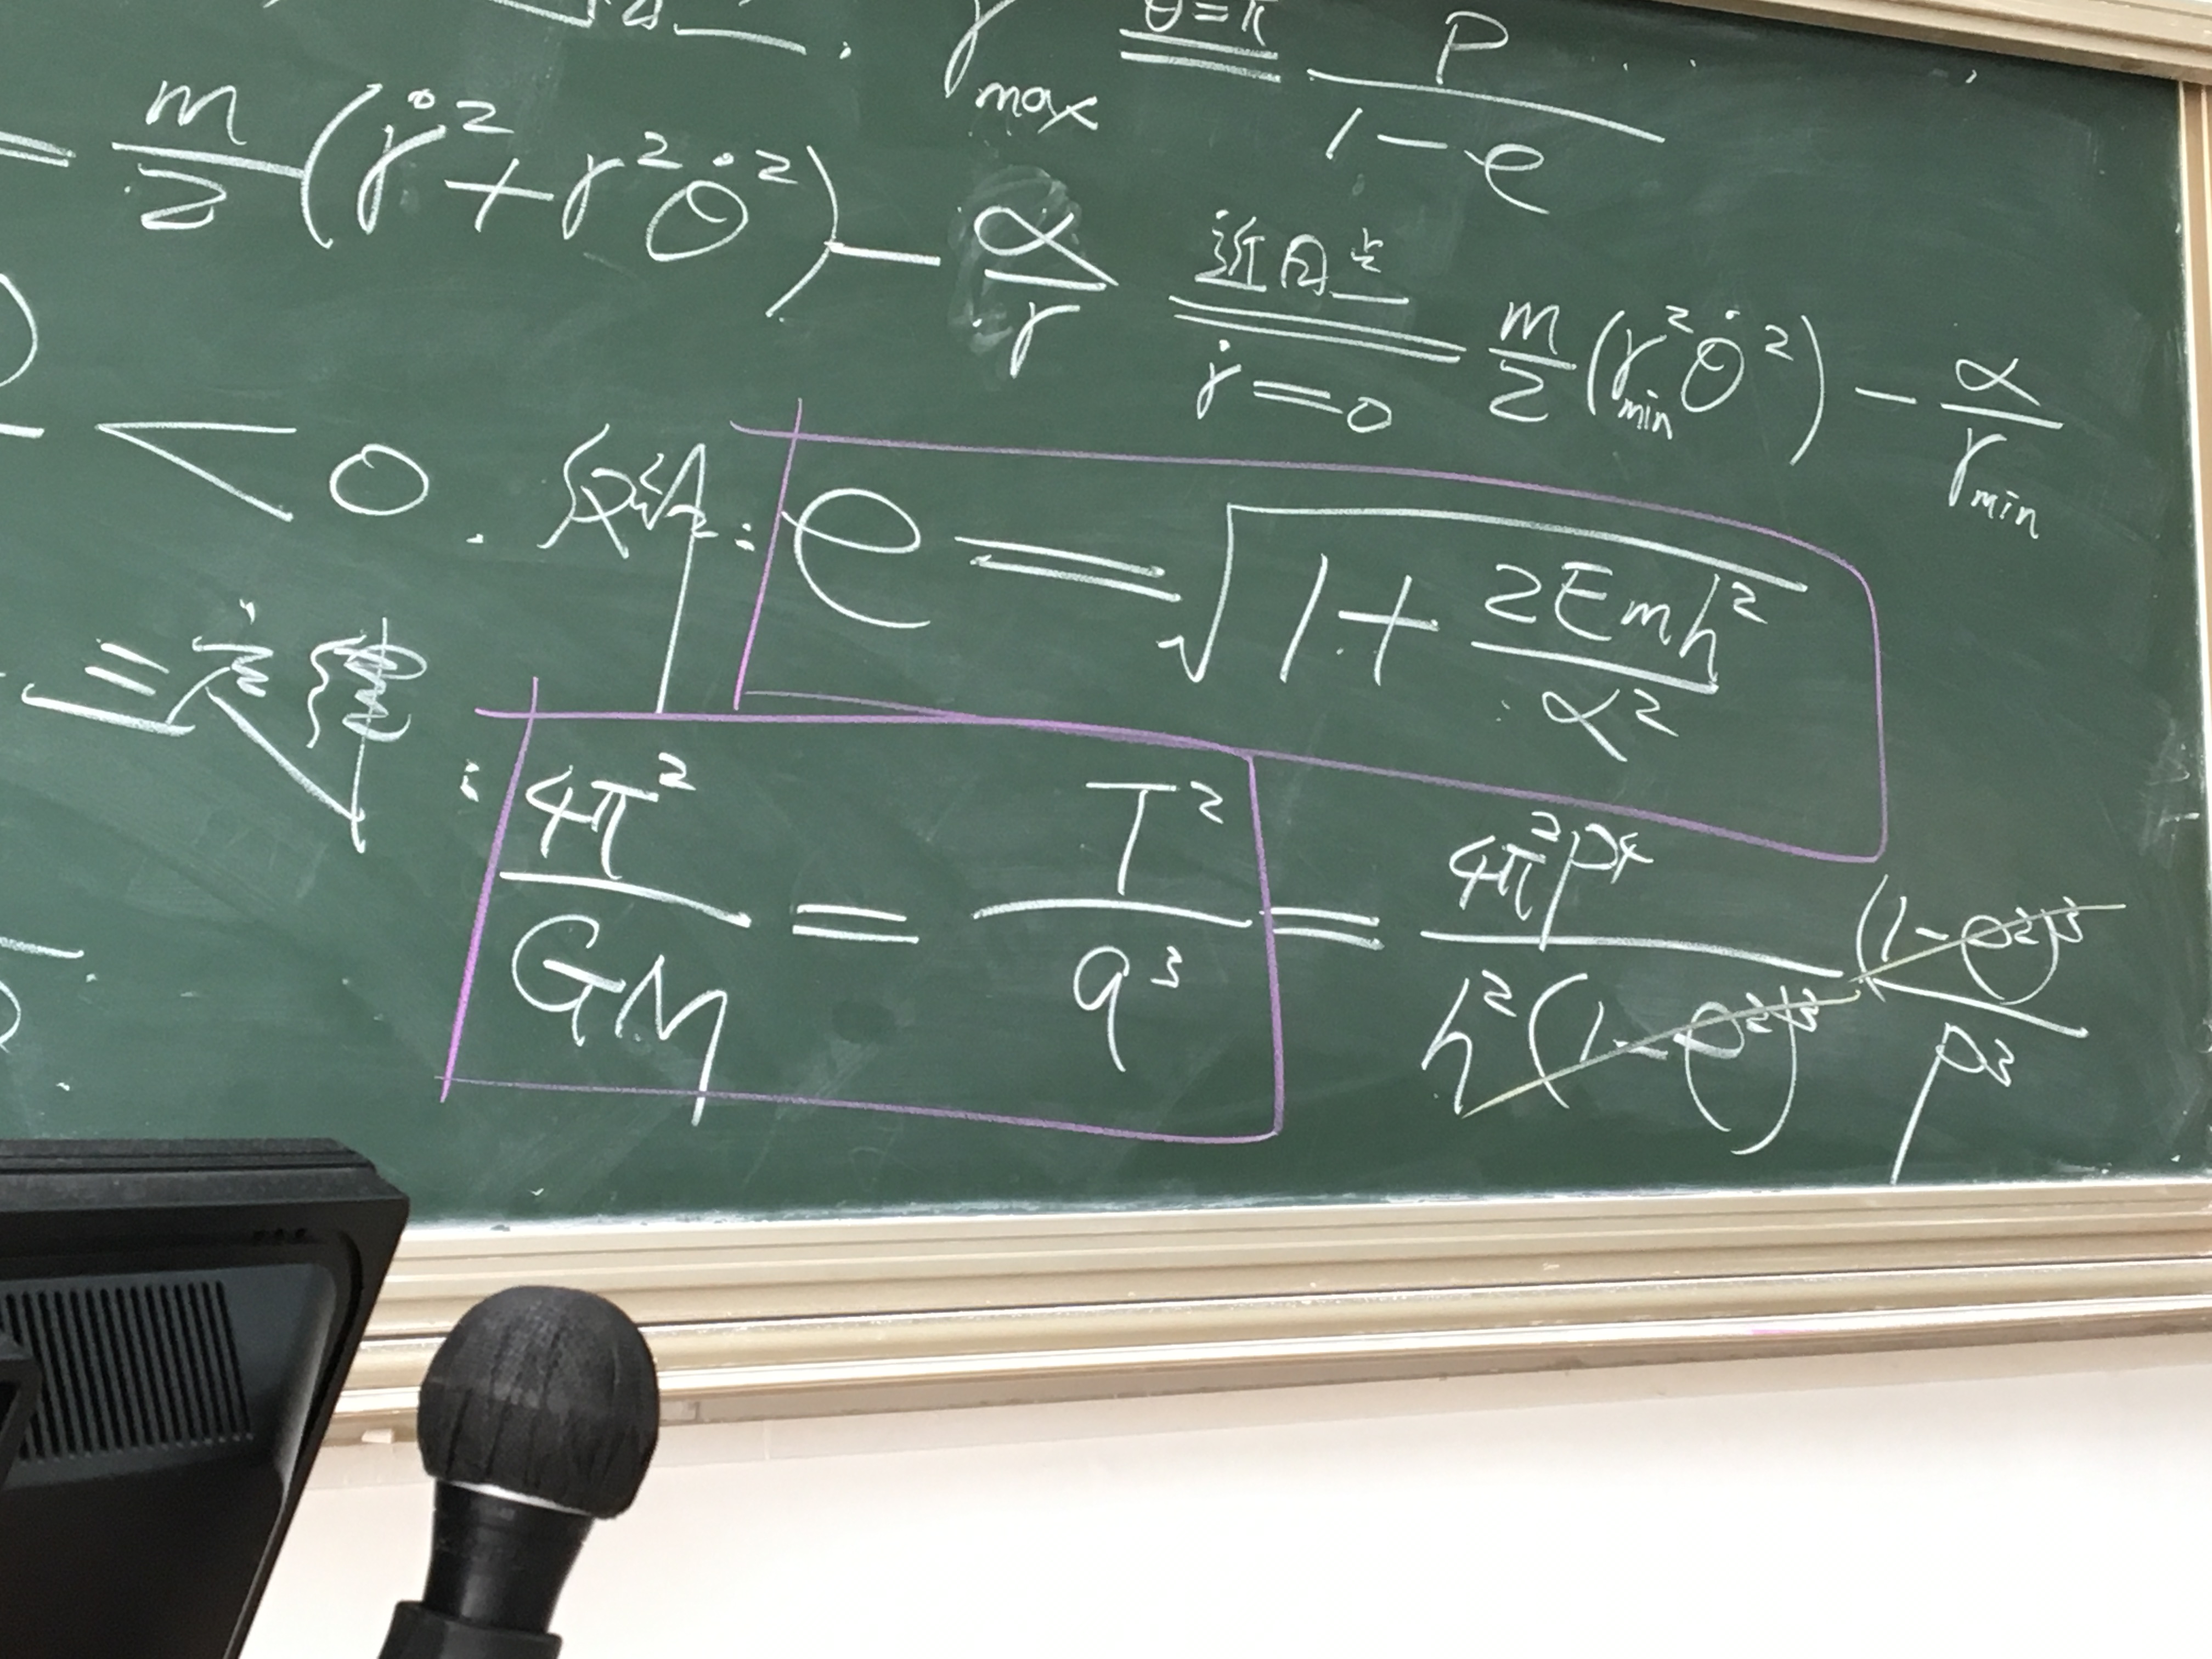 γ_max \overset{θ=π}{=} \frac{P}{1-e}
= \frac{m}{2}(\dot{r}^2+r^2\dot{θ}^2) - \frac{α}{r} \xlongequal[\dot{r}=0]{近日点} \frac{m}{2}(r_{min}^2\dot{θ}^2) - \frac{α}{r_{min}}
< 0. 反解: e = \sqrt{1+\frac{2Emh^2}{α^2}}
三定律: \frac{4π^2}{GM} = \frac{T^2}{a^3} = \frac{4π^2P^4}{h^2(1-e^2)^3} \frac{(1-e^2)^3}{P^3}